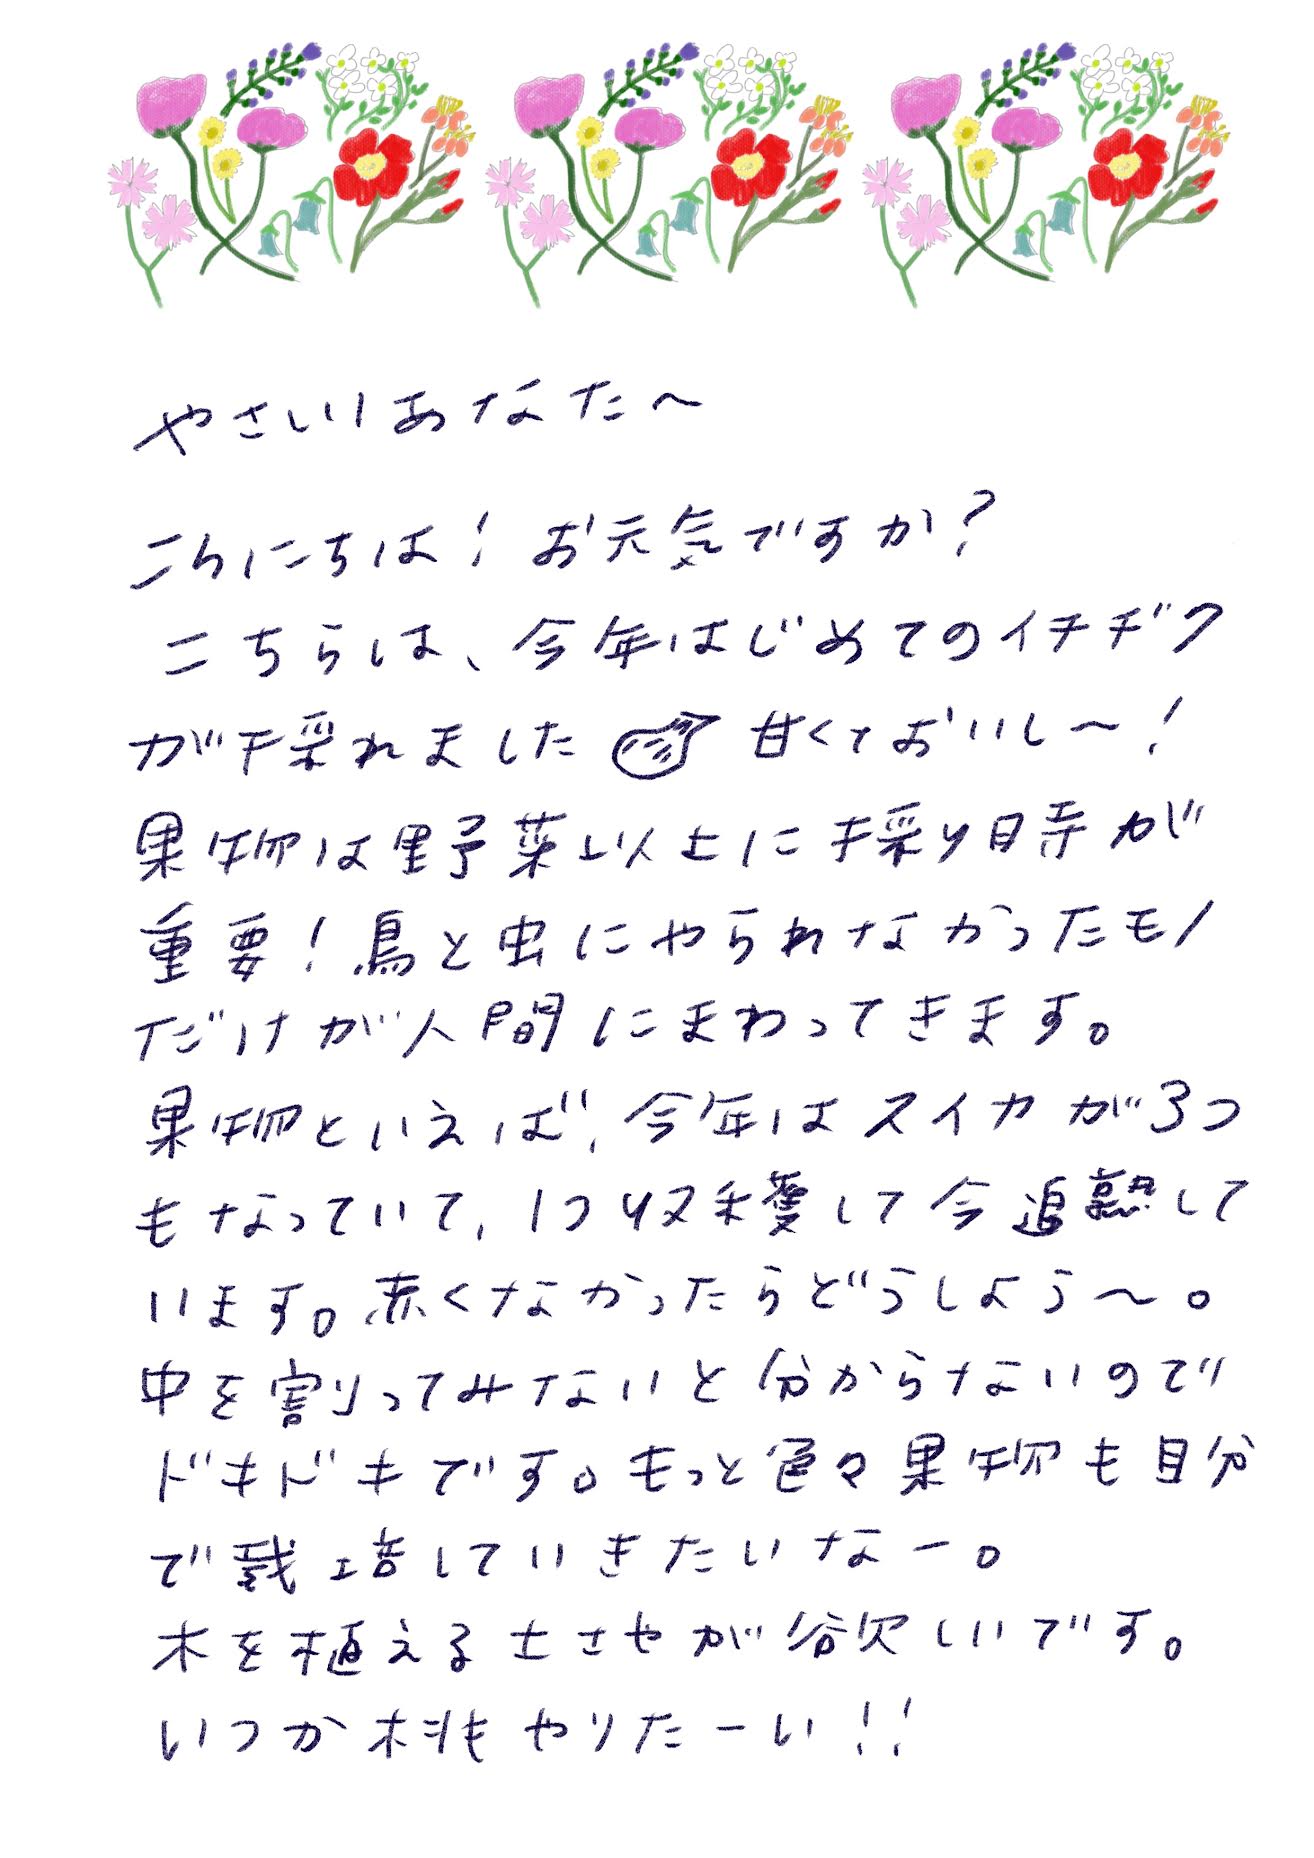 やさしいあなたへ
こんにちは！お元気ですか？
こちらは、今年はじめてのイチヂク
が採れました 甘くておいし〜！
果物は野菜以上に採り時が
重要！鳥と虫にやられなかったモノ
だけが人間にまわってきます。
果物といえば、今年はスイカが3つ
もなっていて、1つ収穫して今追熟して
います。赤くなかったらどうしよう〜。
中を割ってみないと分からないので
ドキドキです。もっと色々果物も自分
で栽培していきたいなー。
木を植える土さやが欲しいです。
いつか桃もやりたーい！！